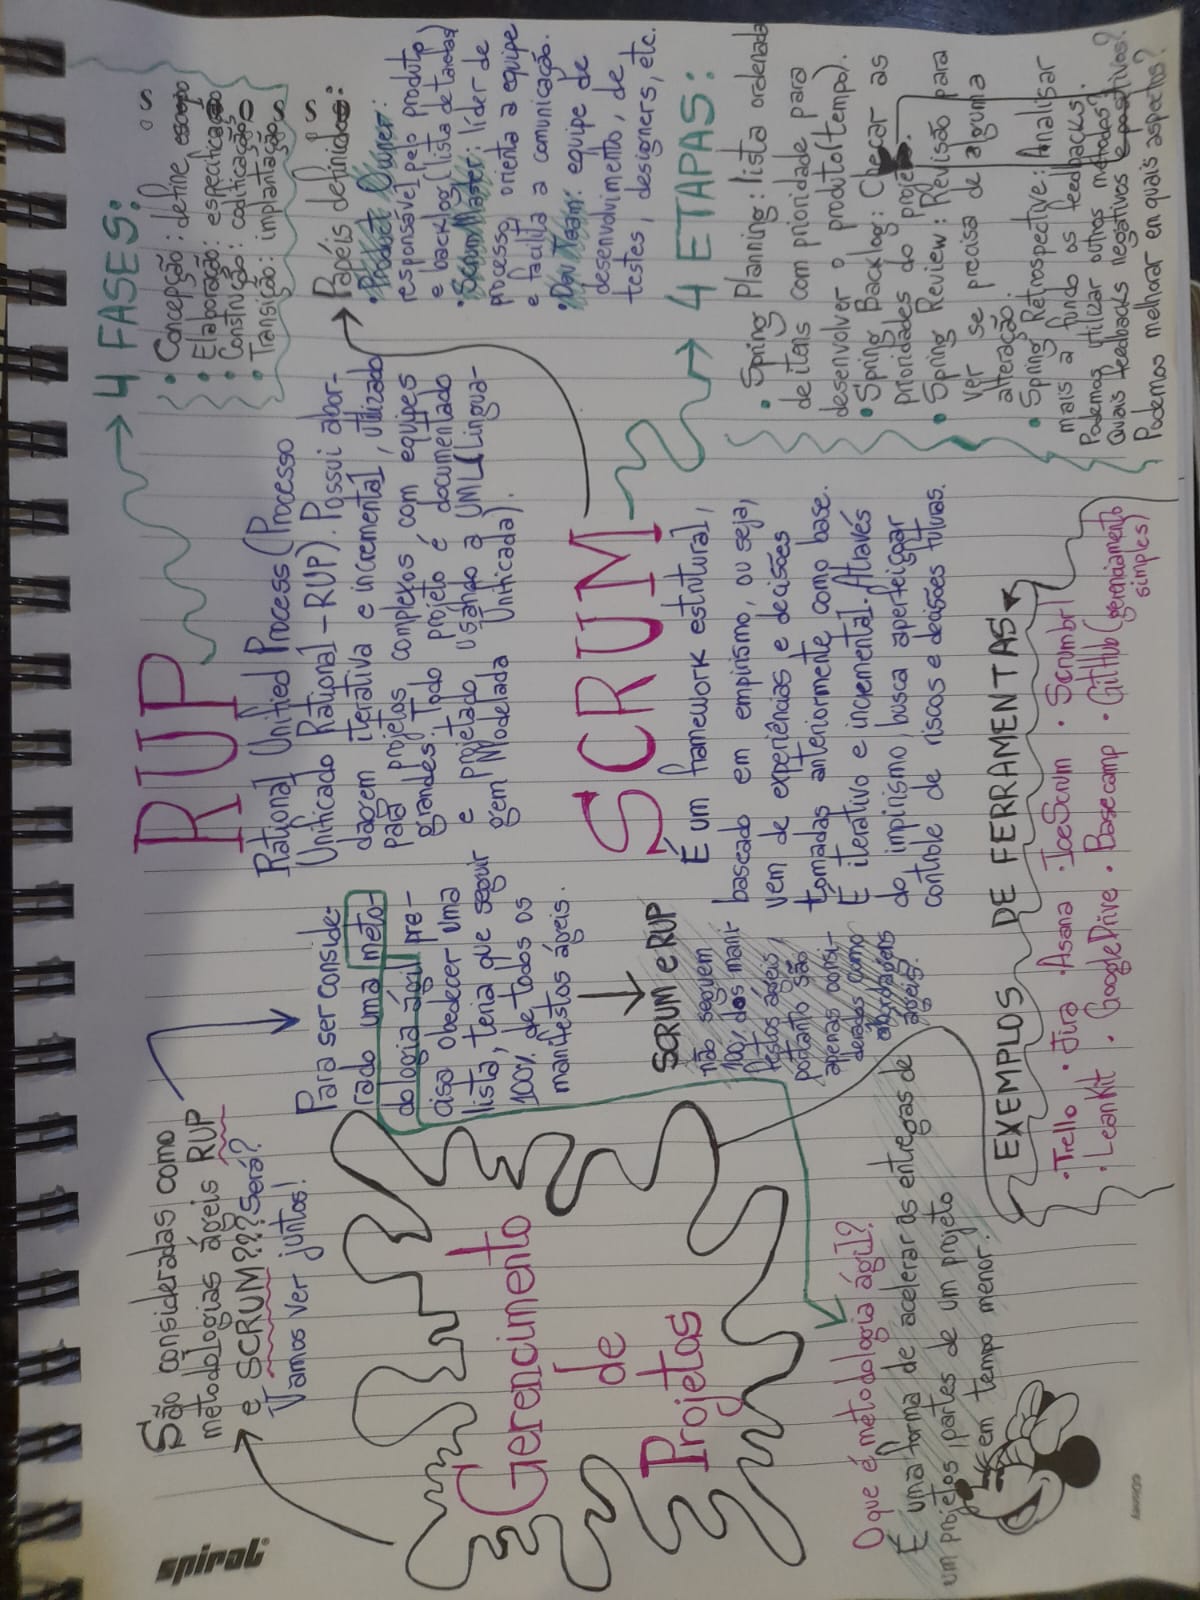 spiral
São consideradas como
metodologias ágeis RUP
e SCRUM??? Será?
Vamos ver juntos!
Gerencimento
de
Projetos
Para ser conside-
rado uma meto-
dologia ágil pre-
cisa obedecer uma
lista, teria que seguir
100% de todos os
manifestos ágeis.
SCRUM e RUP
não seguem
100% dos mani-
festos ágeis,
portanto são
apenas consi-
deradas como
abordagens
ágeis.
O que é metodologia ágil?
É uma forma de acelerar as entregas de
um projetos, partes de um projeto
em tempo menor.
RUP
Rational Unified Process (Processo
Unificado Rational - RUP). Possui abor-
dagem iterativa e incremental, utilizado
para projetos complexos com equipes
grandes. Todo projeto é documentado
e projetado usando a UML (Lingua-
gem Modelada Unificada).
4 FASES:
• Concepção: define escopo
• Elaboração: especificação
• Construção: codificação
• Transição: implantação
SCRUM
É um framework estrutural,
baseado em empirismo, ou seja,
vem de experiências e decisões
tomadas anteriormente como base.
É iterativo e incremental. Através
do impirismo, busca aperfeiçoar
controle de riscos e decisões futuras.
Papéis definidos:
• Product Owner:
responsável pelo produto
e backlog (lista de tarefas)
• Scrum Master: líder de
processo, orienta a equipe
e facilita a comunicação.
• Dev Team: equipe de
desenvolvimento, de
testes, designers, etc.
4 ETAPAS:
• Spring Planning: lista ordenada
de itens com prioridade para
desenvolver o produto (tempo).
• Spring Backlog: Checar as
prioridades do projeto.
• Spring Review: Revisão para
ver se precisa de alguma
alteração.
• Spring Retrospective: Analisar
mais a fundo os feedbacks.
Podemos utilizar outros métodos?
Quais feedbacks negativos e positivos?
Podemos melhorar em quais aspectos?
EXEMPLOS DE FERRAMENTAS
• Trello • Jira • Asana • IceScrum • Scrumbr
• LeanKit • Google Drive • Basecamp • GitHub (gerenciamento
simples)